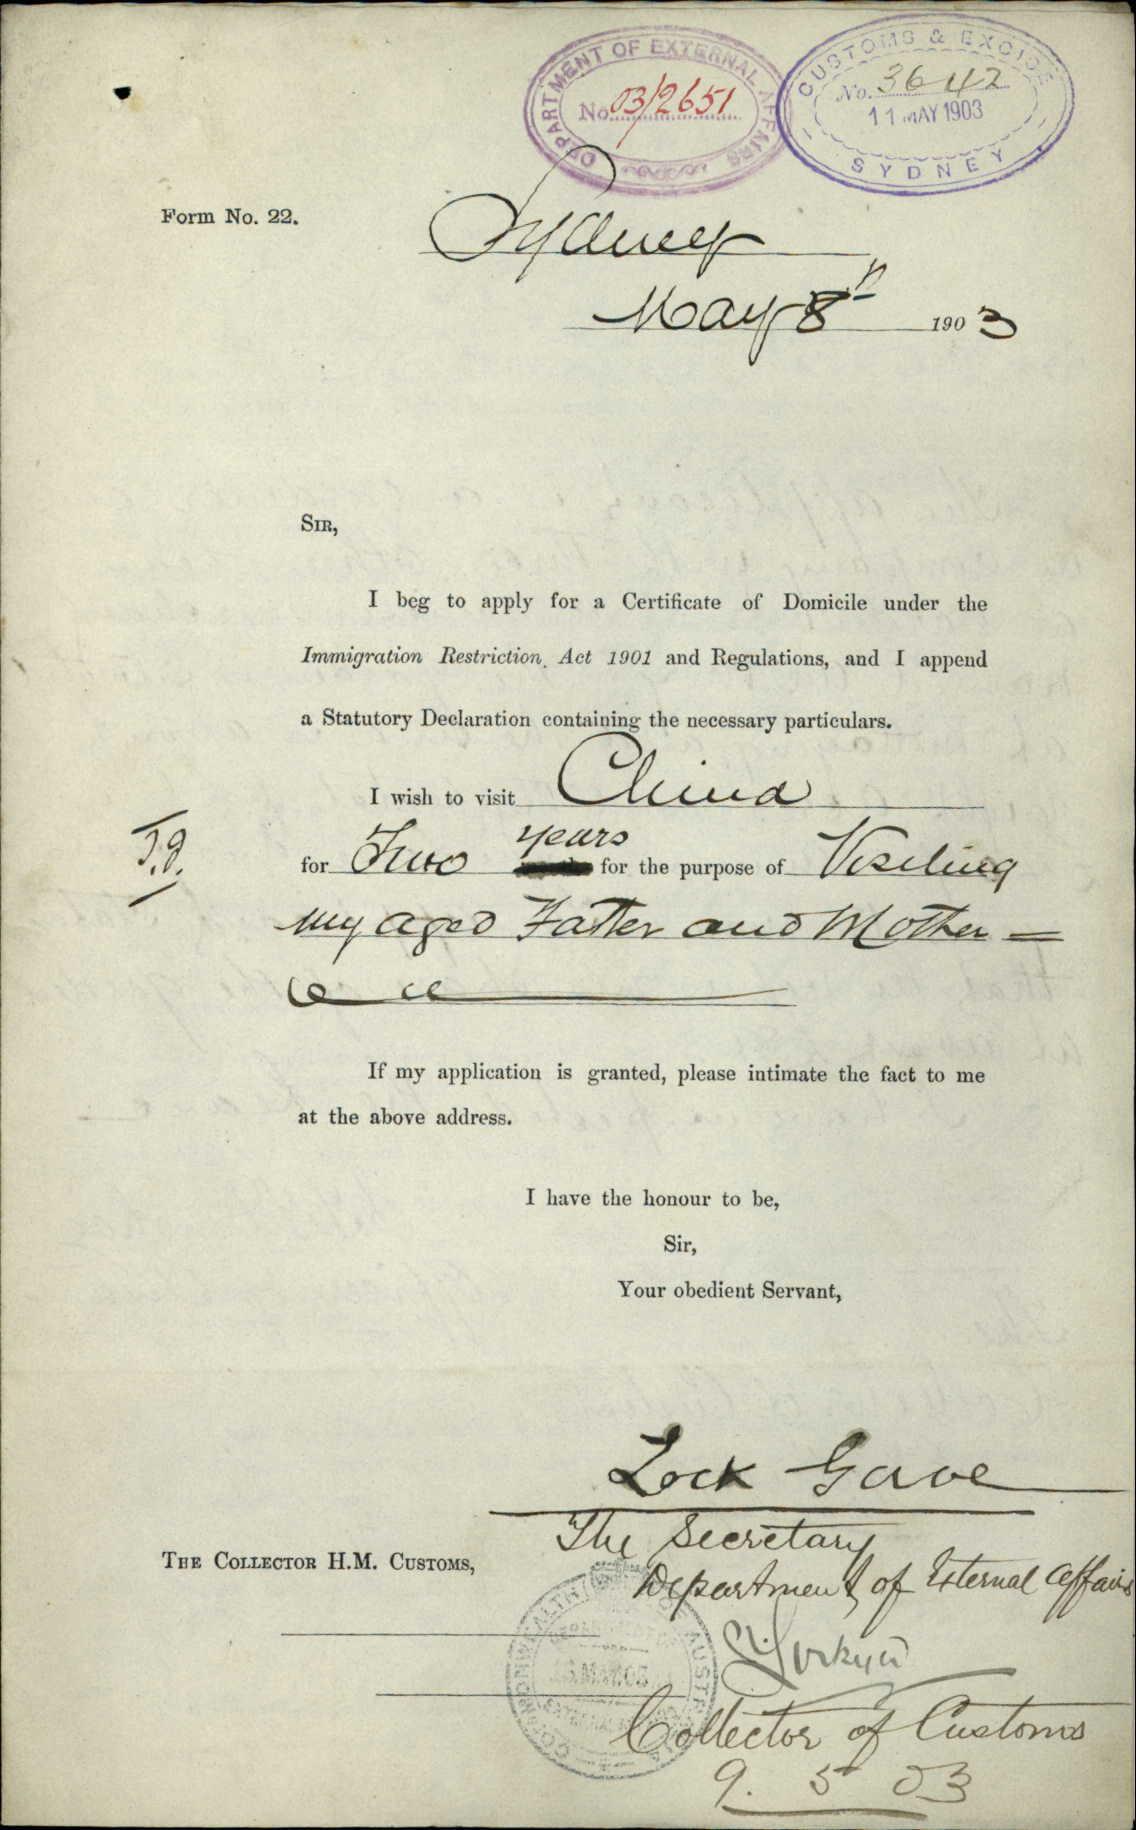 DEPARTMENT OF EXTERNAL AFFAIRS
No. 03/2651
CUSTOMS & EXCISE
No. 3642
11 MAY 1903
SYDNEY
Form No. 22.
Sydney
May 8th 1903
SIR,
I beg to apply for a Certificate of Domicile under the
Immigration Restriction Act 1901 and Regulations, and I append
a Statutory Declaration containing the necessary particulars.
I wish to visit China
years
for Two for the purpose of Visiting
my aged Father and Mother =
If my application is granted, please intimate the fact to me
at the above address.
I have the honour to be,
Sir,
Your obedient Servant,
Lock Gave
The Secretary
THE COLLECTOR H.M. CUSTOMS,
Department of External Affairs
COMMONWEALTH OF AUSTRALIA
MAY.03
Collector of Customs
9. 5 03